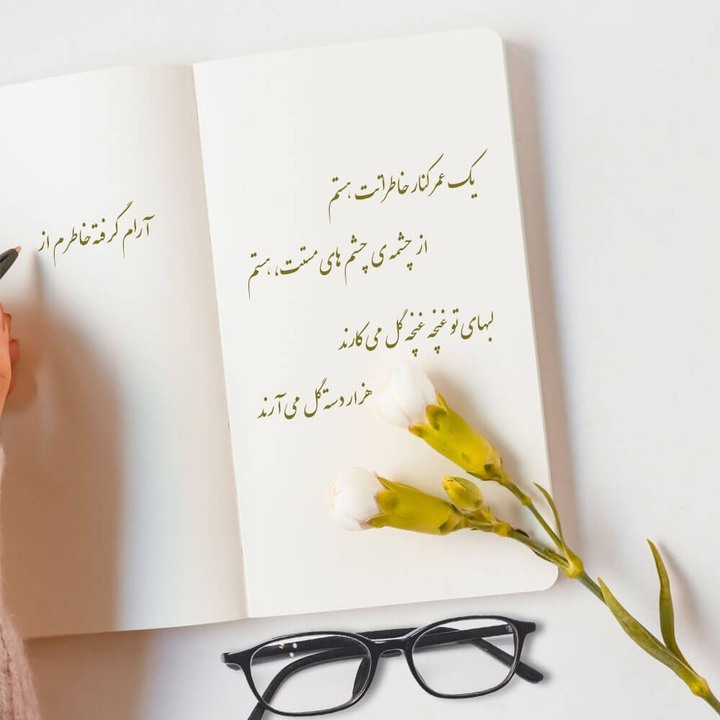 یک عمر کنار خاطراتت هستم
از چشمه ی چشم های مستت، هستم
لبهای تو غنچه غنچه گل می کارند
هزار دسته گل می آرند
آرام گرفته خاطرم از